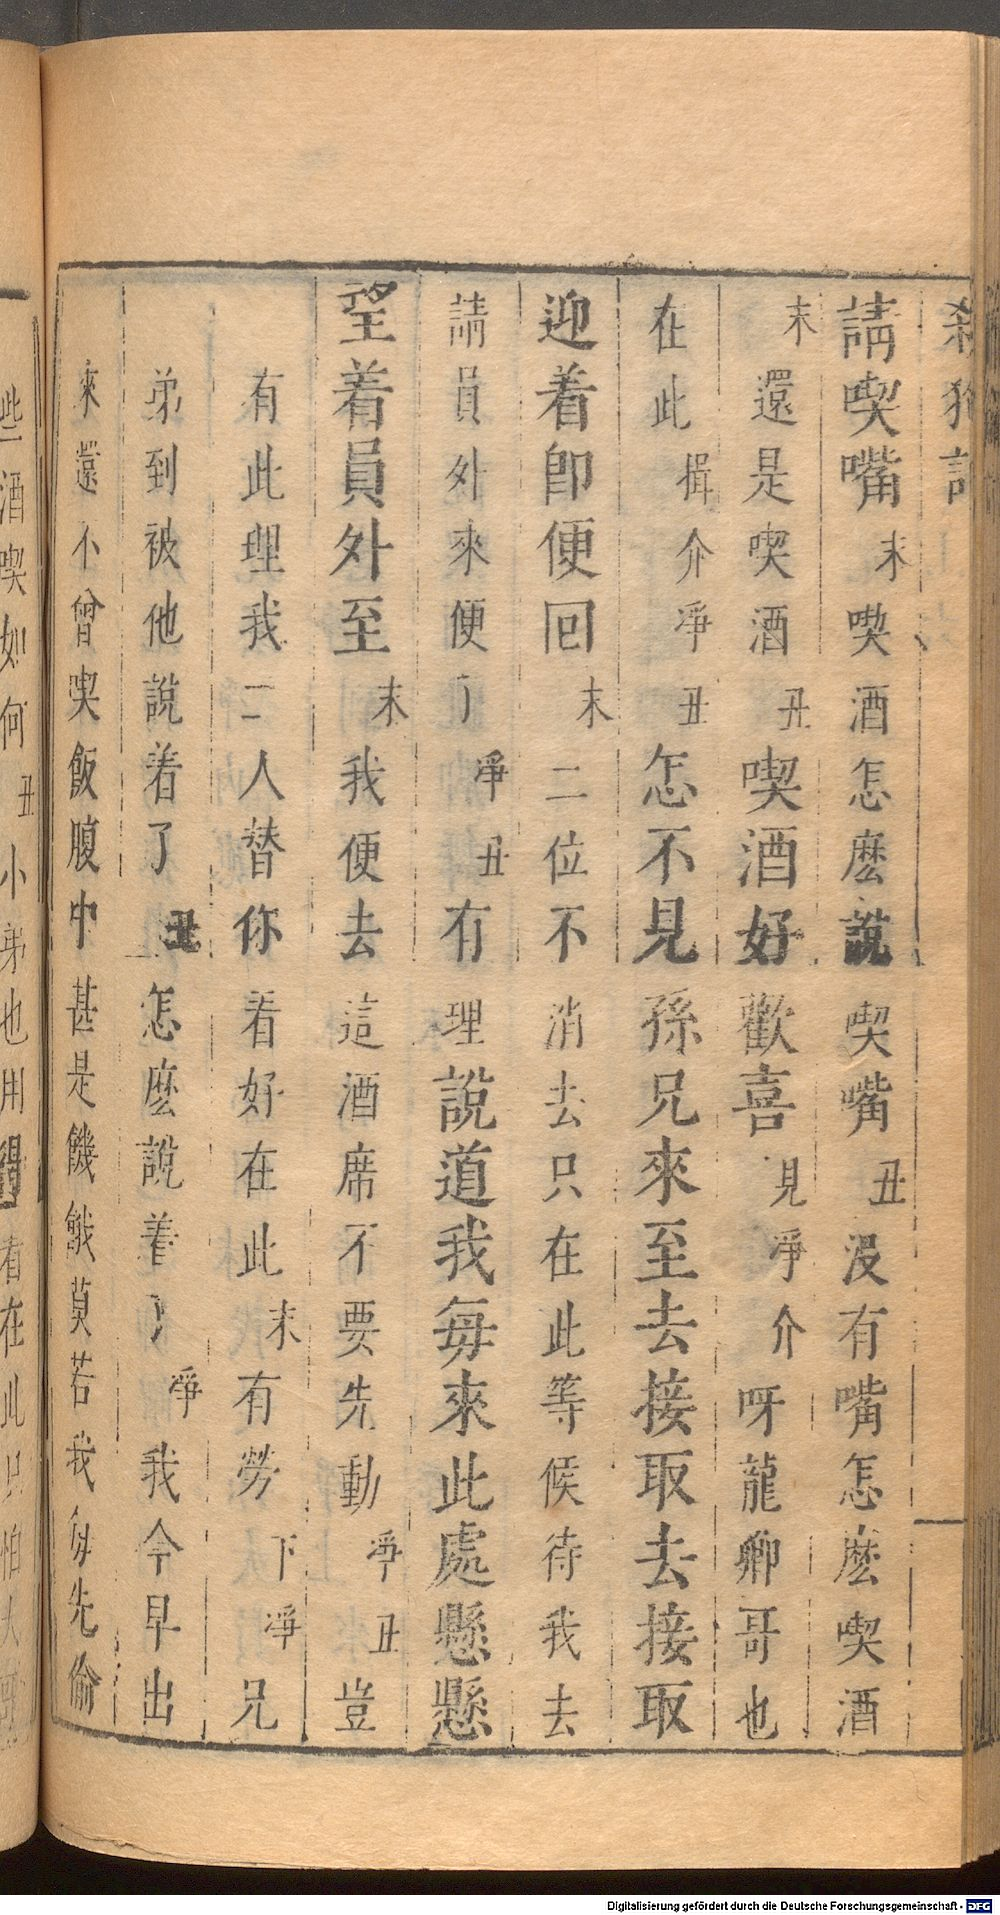 殺狗記
請喫嘴末喫酒怎麽說喫嘴丑沒有嘴怎麽喫酒
末還是喫酒丑喫酒好歡喜見淨介呀龍卿哥也
在此揖介淨丑怎不見孫兄來至去接取去接取
迎着卽便回末二位不消去只在此等候待我去
請員外來便了淨丑有理說道我每來此處懸懸
望着員外至末我便去這酒席不要先動淨丑豈
有此理我二人替你看好在此末有勞下淨兄
弟到被他說着了丑怎麽說着了淨我今早出
來還不曾喫飯腹中甚是饑餓莫若我每先偷
些酒喫如何丑小弟也用得着在此只怕大哥
Digitalisierung gefördert durch die Deutsche Forschungsgemeinschaft - DFG